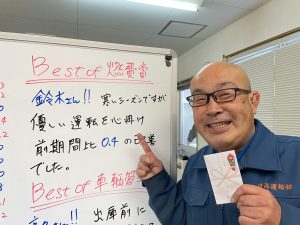 Best of 燃費賞
鈴木さん!! 寒いシーズンですが
優しい運転を心掛け
前期間比 0.4 の改善
でした。
Best of 車輌管
出庫前に